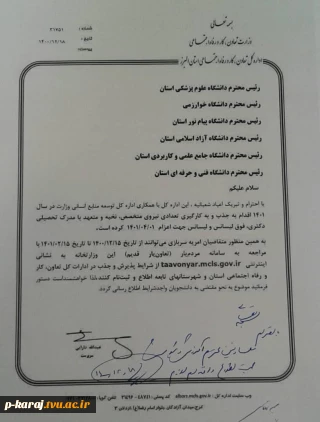 بسمه تعالی
وزارت تعاون، کار و رفاه اجتماعی
اداره کل تعاون، کار و رفاه اجتماعی استان البرز
شماره : ۲۱۷۵۱
تاریخ : ۱۴۰۰/۱۲/۱۸
پیوست :
رئیس محترم دانشگاه علوم پزشکی استان
رئیس محترم دانشگاه خوارزمی
رئیس محترم دانشگاه پیام نور استان
رئیس محترم دانشگاه آزاد اسلامی استان
رئیس محترم دانشگاه جامع علمی و کاربردی استان
رئیس محترم دانشگاه فنی و حرفه ای استان
سلام علیکم
با احترام و تبریک اعیاد شعبانیه ، این اداره کل با همکاری اداره کل توسعه منابع انسانی وزارت در سال
۱۴۰۱ اقدام به جذب و به کارگیری تعدادی نیروی متخصص، نخبه و متعهد با مدرک تحصیلی
دکتری، فوق لیسانس و لیسانس جهت اعزام ۱۴۰۱/۰۴/۰۱ کرده است.
به همین منظور متقاضیان امریه سربازی می‌توانند از تاریخ ۱۴۰۰/۱۲/۱۵ تا تاریخ ۱۴۰۱/۰۲/۱۵ با
مراجعه به سامانه مردم‌یار (تعاون‌یار قدیم) این وزارتخانه به نشانی
اینترنتی taavonyar.mcls.gov.ir از شرایط پذیرش و جذب در ادارات کل تعاون، کار
و رفاه اجتماعی استان و شهرستانهای تابعه اطلاع و ثبت‌نام کنند،لذا خواهشمنداست دستور
فرمائید موضوع به نحو مقتضی به دانشجویان واجدشرایط اطلاع رسانی گردد.
عبدالله دارابی
سرپرست
p-karaj.tvu.ac.ir